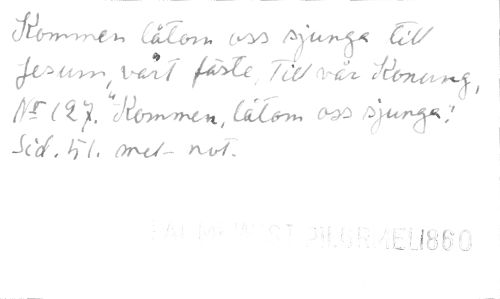 Kommen låtom oss sjunga till
Jesum, vårt fäste, Till vår Konung,
No 127. "Kommen, låtom oss sjunga".
Sid. 51. mel- not.
1860